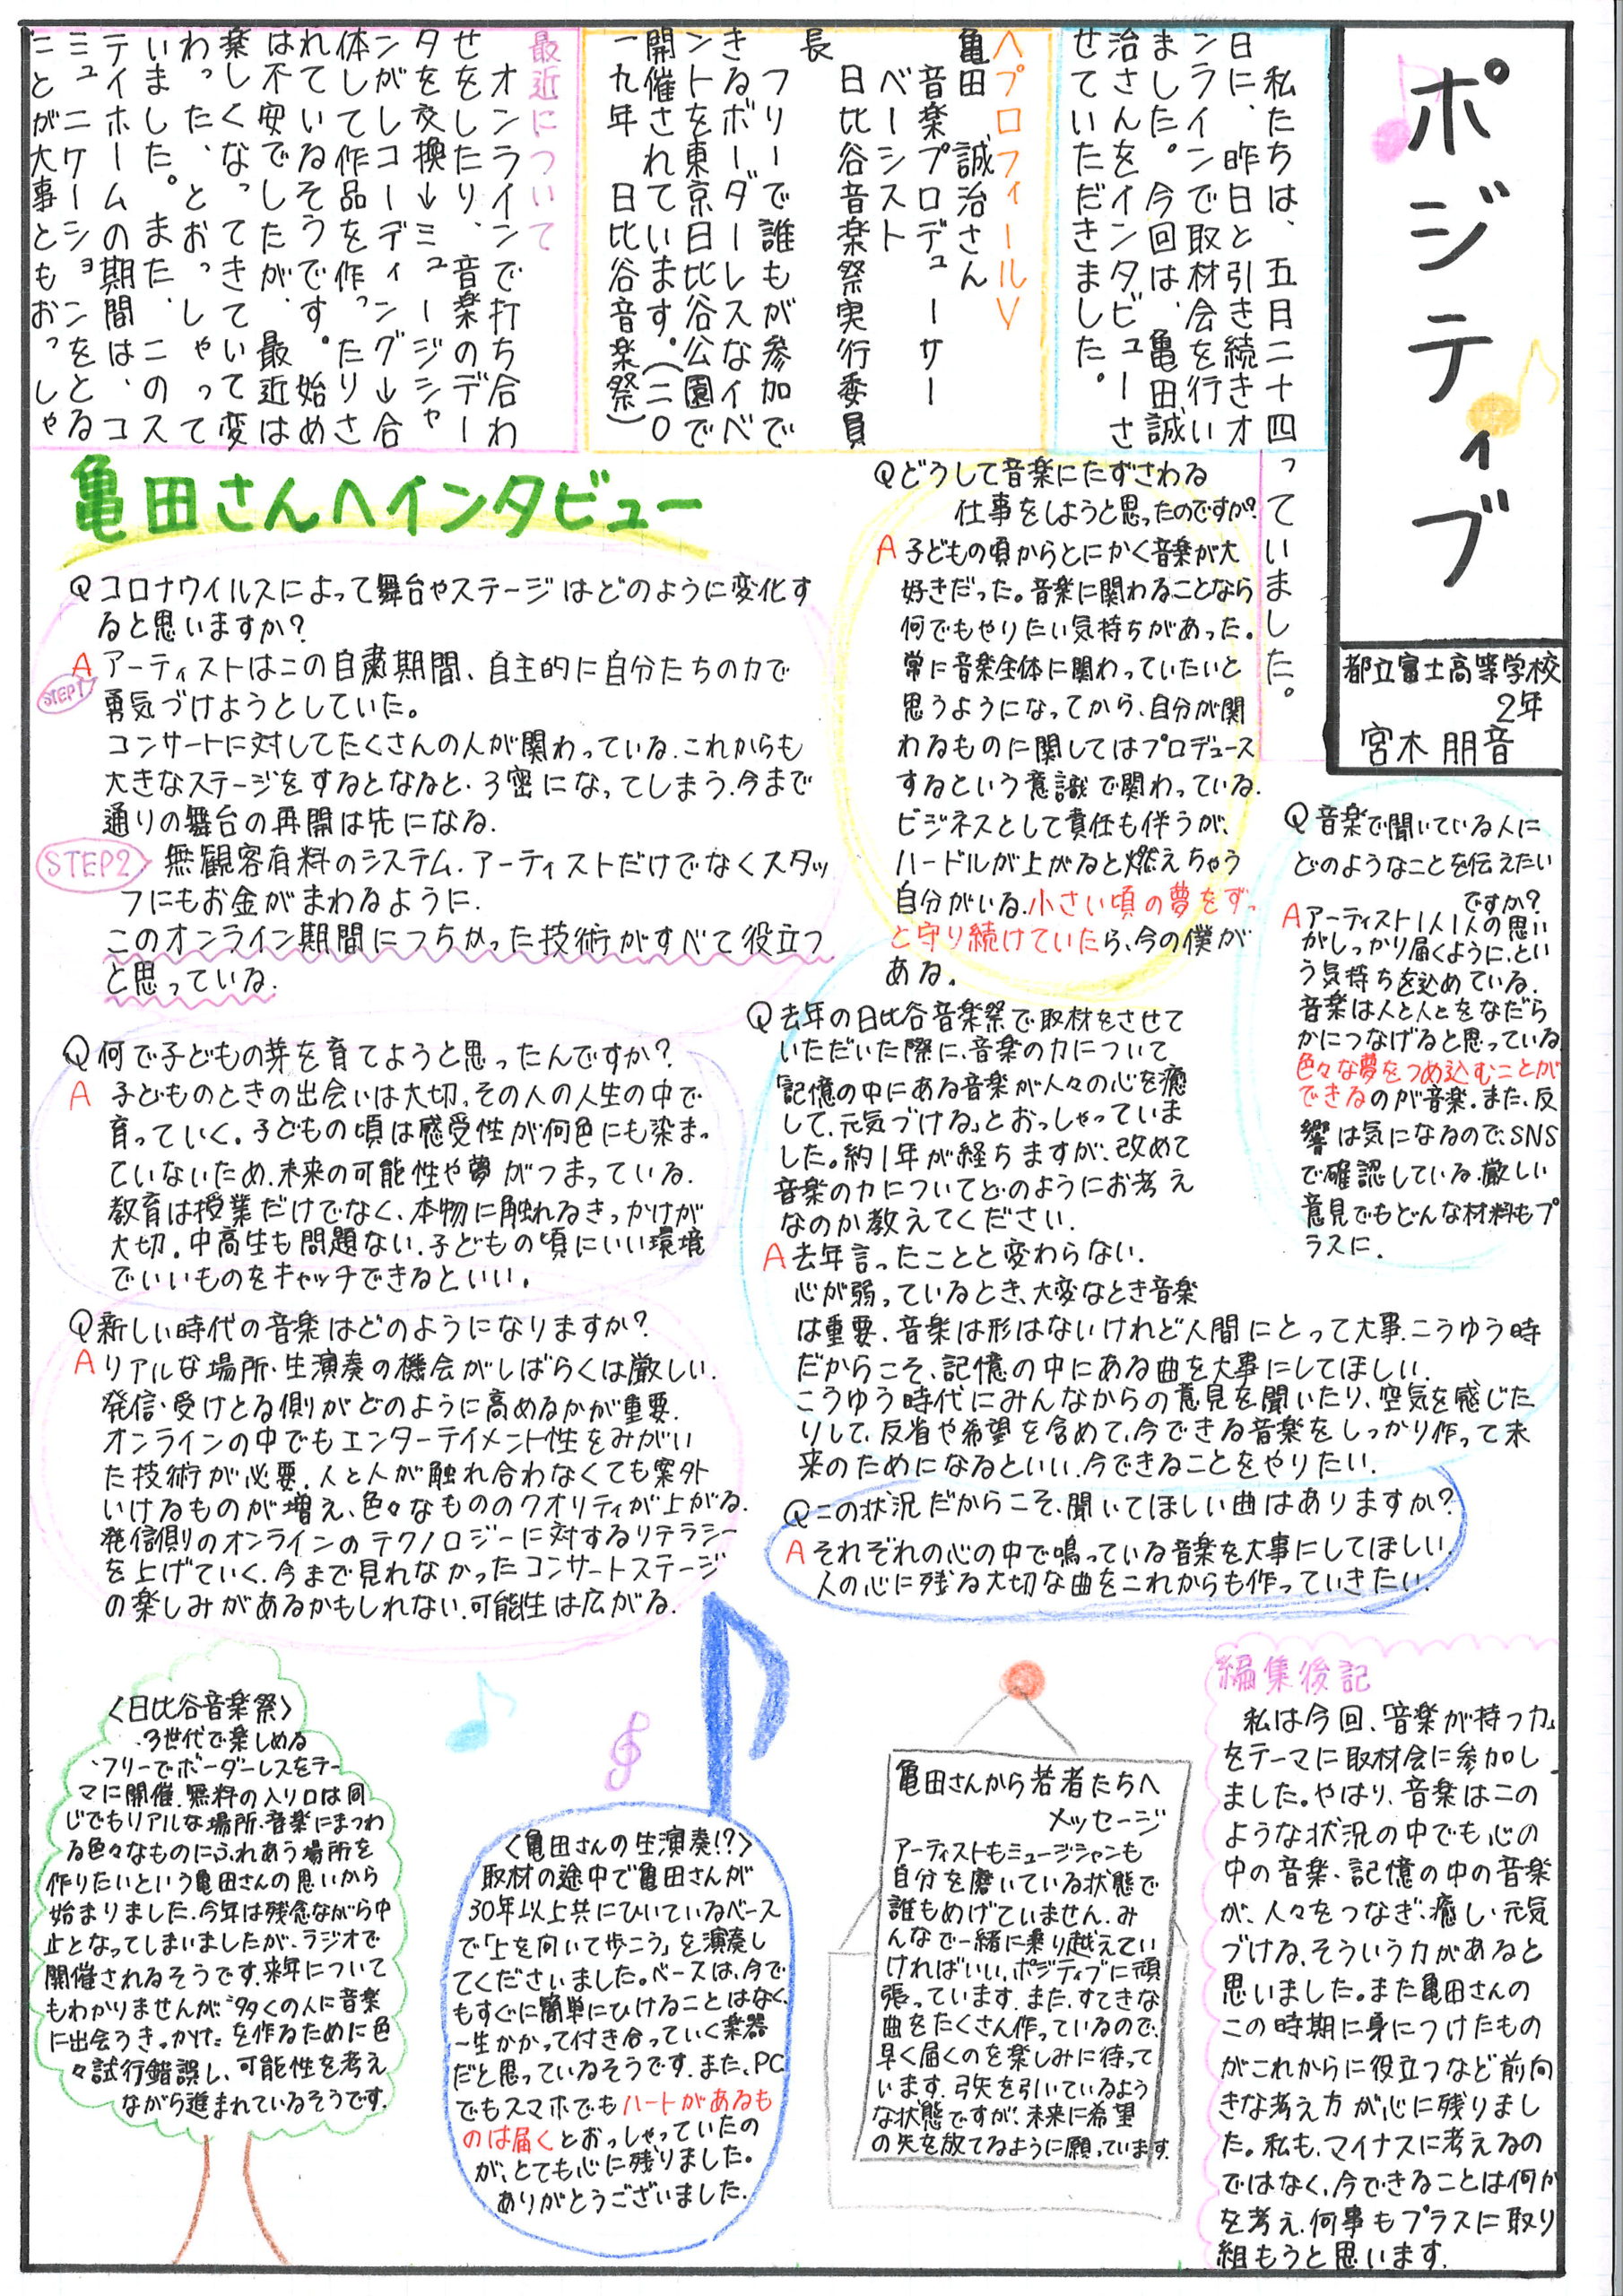 ポジティブ
都立富士高等学校
2年
宮木 朋音
私たちは、五月二十四
日に、昨日と引き続きオ
ンラインで取材会を行い
ました。今回は、亀田誠
治さんをインタビューさ
せていただきました。
〈プロフィール〉
亀田 誠治さん
音楽プロデューサー
ベーシスト
日比谷音楽祭実行委員
長
フリーで誰もが参加で
きるボーダーレスなイベ
ントを東京日比谷公園で
開催されています。(二〇
一九年 日比谷音楽祭)
最近について
オンラインで打ち合わ
せをしたり、音楽のデー
タを交換→ミュージシャ
ンがレコーディング→合
体して作品を作ったりさ
れているそうです。始め
は不安でしたが、最近は
楽しくなってきていて変
わった、とおっしゃって
いました。また、このス
テイホームの期間は、コ
ミュニケーションをとる
ことが大事ともおっしゃ
っていました。
亀田さんへインタビュー
Qどうして音楽にたずさわる
仕事をしようと思ったのですか?
A 子どもの頃からとにかく音楽が大
好きだった。音楽に関わることなら
何でもやりたい気持ちがあった。
常に音楽全体に関わっていたいと
思うようになってから、自分が関
わるものに関してはプロデュース
するという意識で関わっている.
ビジネスとして責任も伴うが、
ハードルが上がると燃えちゃう
自分がいる.小さい頃の夢をずっ
と守り続けていたら、今の僕が
ある。
Q 音楽で聞いている人に
どのようなことを伝えたい
ですか?
Aアーティスト1人1人の思い
がしっかり届くように、とい
う気持ちを込めている.
音楽は人と人とをなだら
かにつなげると思っている.
色々な夢をつめ込むことが
できるのが音楽.また、反
響は気になるので、SNS
で確認している.厳しい
意見でもどんな材料もプ
ラスに.
Qコロナウイルスによって舞台やステージはどのように変化す
ると思いますか?
A アーティストはこの自粛期間、自主的に自分たちの力で
STEP1
勇気づけようとしていた。
コンサートに対してたくさんの人が関わっている.これからも
大きなステージをするとなると、3密になってしまう.今まで
通りの舞台の再開は先になる.
STEP2 無観客有料のシステム.アーティストだけでなくスタッ
フにもお金がまわるように.
このオンライン期間につちかった技術がすべて役立つ
と思っている.
Q 何で子どもの芽を育てようと思ったんですか?
A 子どものときの出会いは大切。その人の人生の中で
育っていく。子どもの頃は感受性が何色にも染まっ
ていないため、未来の可能性や夢がつまっている.
教育は授業だけでなく、本物に触れるきっかけが
大切。中高生も問題ない.子どもの頃にいい環境
でいいものをキャッチできるといい。
Q新しい時代の音楽はどのようになりますか?
Aリアルな場所・生演奏の機会がしばらくは厳しい.
発信・受けとる側がどのように高めるかが重要.
オンラインの中でもエンターテイメント性をみがい
た技術が必要.人と人が触れ合わなくても案外
いけるものが増え、色々なもののクオリティが上がる.
発信側のオンラインのテクノロジーに対するリテラシー
を上げていく.今まで見れなかったコンサートステージ
の楽しみがあるかもしれない.可能性は広がる.
Q 去年の日比谷音楽祭で取材をさせて
いただいた際に、音楽の力について
「記憶の中にある音楽が人々の心を癒
して、元気づける」とおっしゃっていま
した。約1年が経ちますが、改めて
音楽の力についてどのようにお考え
なのか教えてください.
A去年言ったことと変わらない.
心が弱っているとき、大変なとき音楽
は重要.音楽は形はないけれど人間にとって大事.こうゆう時
だからこそ、記憶の中にある曲を大事にしてほしい.
こうゆう時代にみんなからの意見を聞いたり、空気を感じた
りして、反省や希望を含めて、今できる音楽をしっかり作って未
来のためになるといい.今できることをやりたい.
Qこの状況だからこそ、聞いてほしい曲はありますか?
Aそれぞれの心の中で鳴っている音楽を大事にしてほしい.
人の心に残る大切な曲をこれからも作っていきたい.
〈日比谷音楽祭〉
・3世代で楽しめる
・フリーでボーダーレスをテー
マに開催.無料の入り口は同
じでもリアルな場所・音楽にまつわ
る色々なものにふれあう場所を
作りたいという亀田さんの思いから
始まりました.今年は残念ながら中
止となってしまいましたが、ラジオで
開催されるそうです.来年について
もわかりませんが"多くの人に音楽
に出会うきっかけ"を作るために色
々試行錯誤し、可能性を考え
ながら進まれているそうです.
〈亀田さんの生演奏!?〉
取材の途中で亀田さんが
30年以上共にひいているベース
で「上を向いて歩こう」を演奏し
てくださいました。ベースは、今で
もすぐに簡単にひけることはなく、
一生かかって付き合っていく楽器
だと思っているそうです.また、PC
でもスマホでもハートがあるも
のは届くとおっしゃっていたの
が、とても心に残りました。
ありがとうございました.
亀田さんから若者たちへ
メッセージ
アーティストもミュージシャンも
自分を磨いている状態で
誰もめげていません.み
んなで一緒に乗り越えてい
ければいい.ポジティブに頑
張っています.また、すてきな
曲をたくさん作っているので、
早く届くのを楽しみに待って
います.弓矢を引いているよう
な状態ですが、未来に希望
の矢を放てるように願っています.
編集後記
私は今回、「音楽が持つ力」
をテーマに取材会に参加し
ました。やはり、音楽はこの
ような状況の中でも心の
中の音楽・記憶の中の音楽
が、人々をつなぎ、癒し、元気
づける、そういう力があると
思いました。また亀田さんの
この時期に身につけたもの
がこれからに役立つなど前向
きな考え方が心に残りまし
た。私も、マイナスに考えるの
ではなく、今できることは何か
を考え、何事もプラスに取り
組もうと思います.